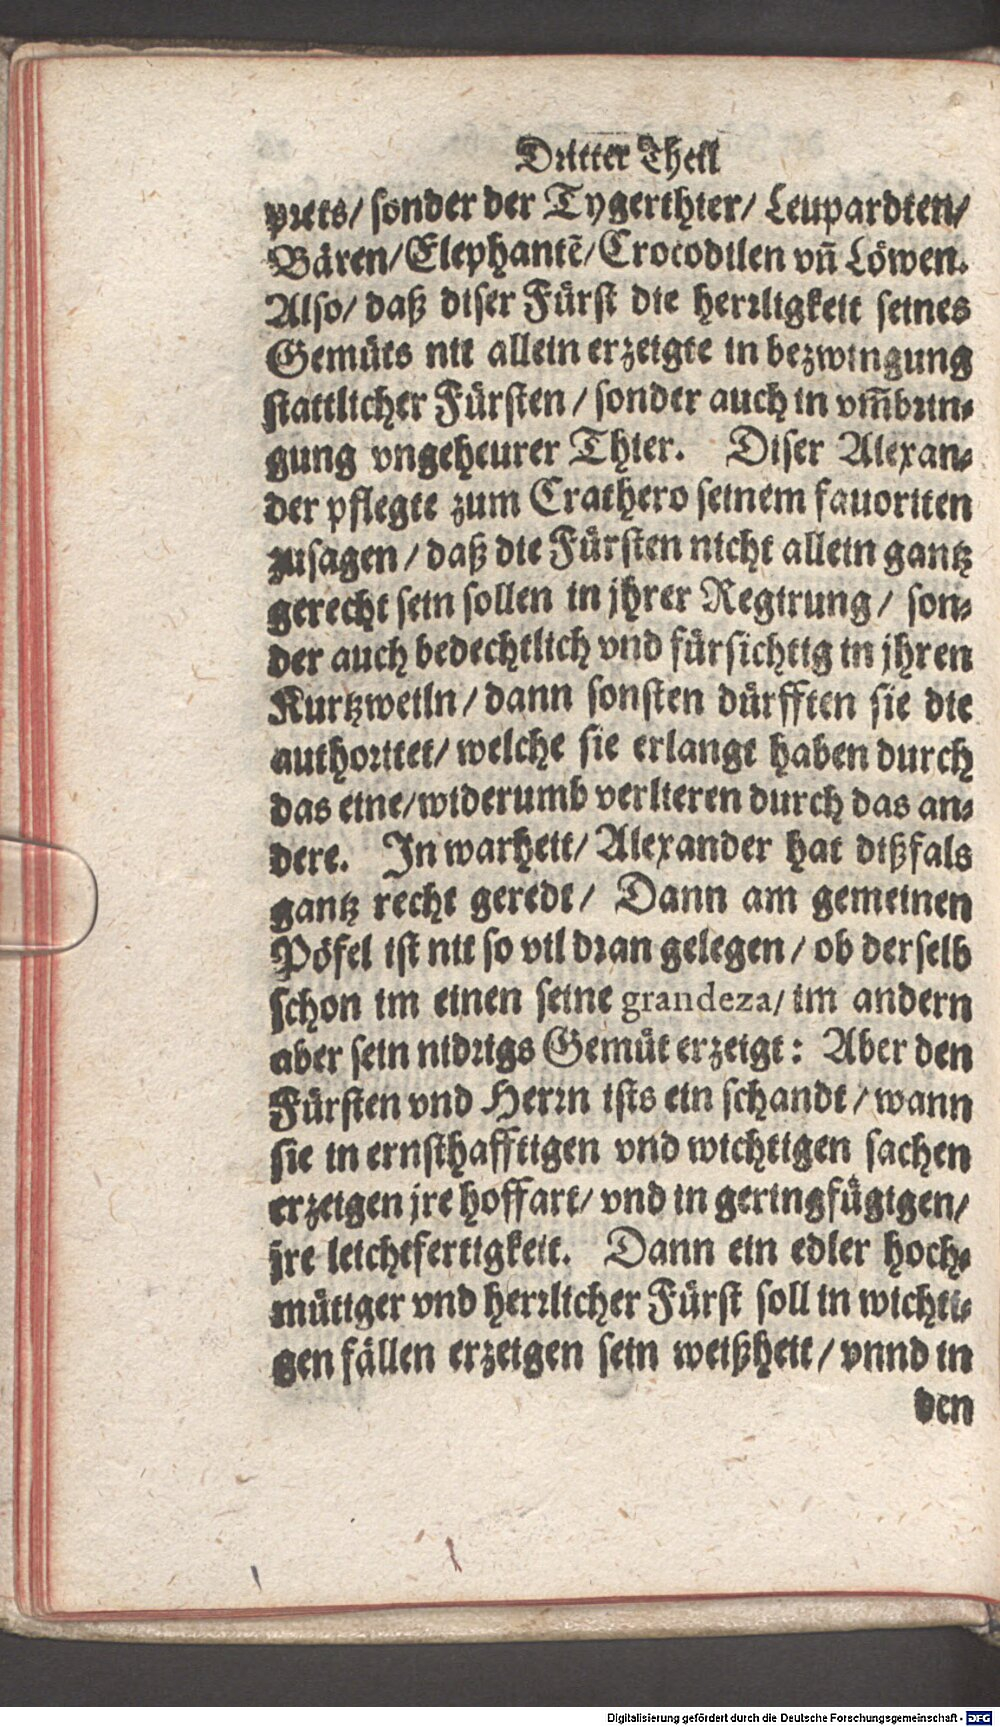 Dritter Theil
prets/ sonder der Tygerthier/ Leupardten/
Bären/ Elephantẽ/ Crocodilen vn̄ Löwen.
Also/ daß diser Fürst die herrligkeit seines
Gemüts nit allein erzeigte in bezwingung
stattlicher Fürsten / sonder auch in vm̄brin-
gung vngeheurer Thier. Diser Alexan-
der pflegte zum Crathero seinem fauoriten
zusagen / daß die Fürsten nicht allein gantz
gerecht sein sollen in jhrer Regirung / son-
der auch bedechtlich vnd fürsichtig in jhren
Kurtzweiln / dann sonsten dürfften sie die
authoritet/ welche sie erlangt haben durch
das eine/ widerumb verlieren durch das an-
dere. In warheit/ Alexander hat dißfals
gantz recht geredt / Dann am gemeinen
Pöfel ist nit so vil dran gelegen / ob derselb
schon im einen seine grandeza/ im andern
aber sein nidrigs Gemüt erzeigt: Aber den
Fürsten vnd Herrn ists ein schandt / wann
sie in ernsthafftigen vnd wichtigen sachen
erzeigen jre hoffart/ vnd in geringfügigen/
jre leichtfertigkeit. Dann ein edler hoch-
mütiger vnd herrlicher Fürst soll in wichti-
gen fällen erzeigen sein weißheit / vnnd in
den
Digitalisierung gefördert durch die Deutsche Forschungsgemeinschaft - DFG